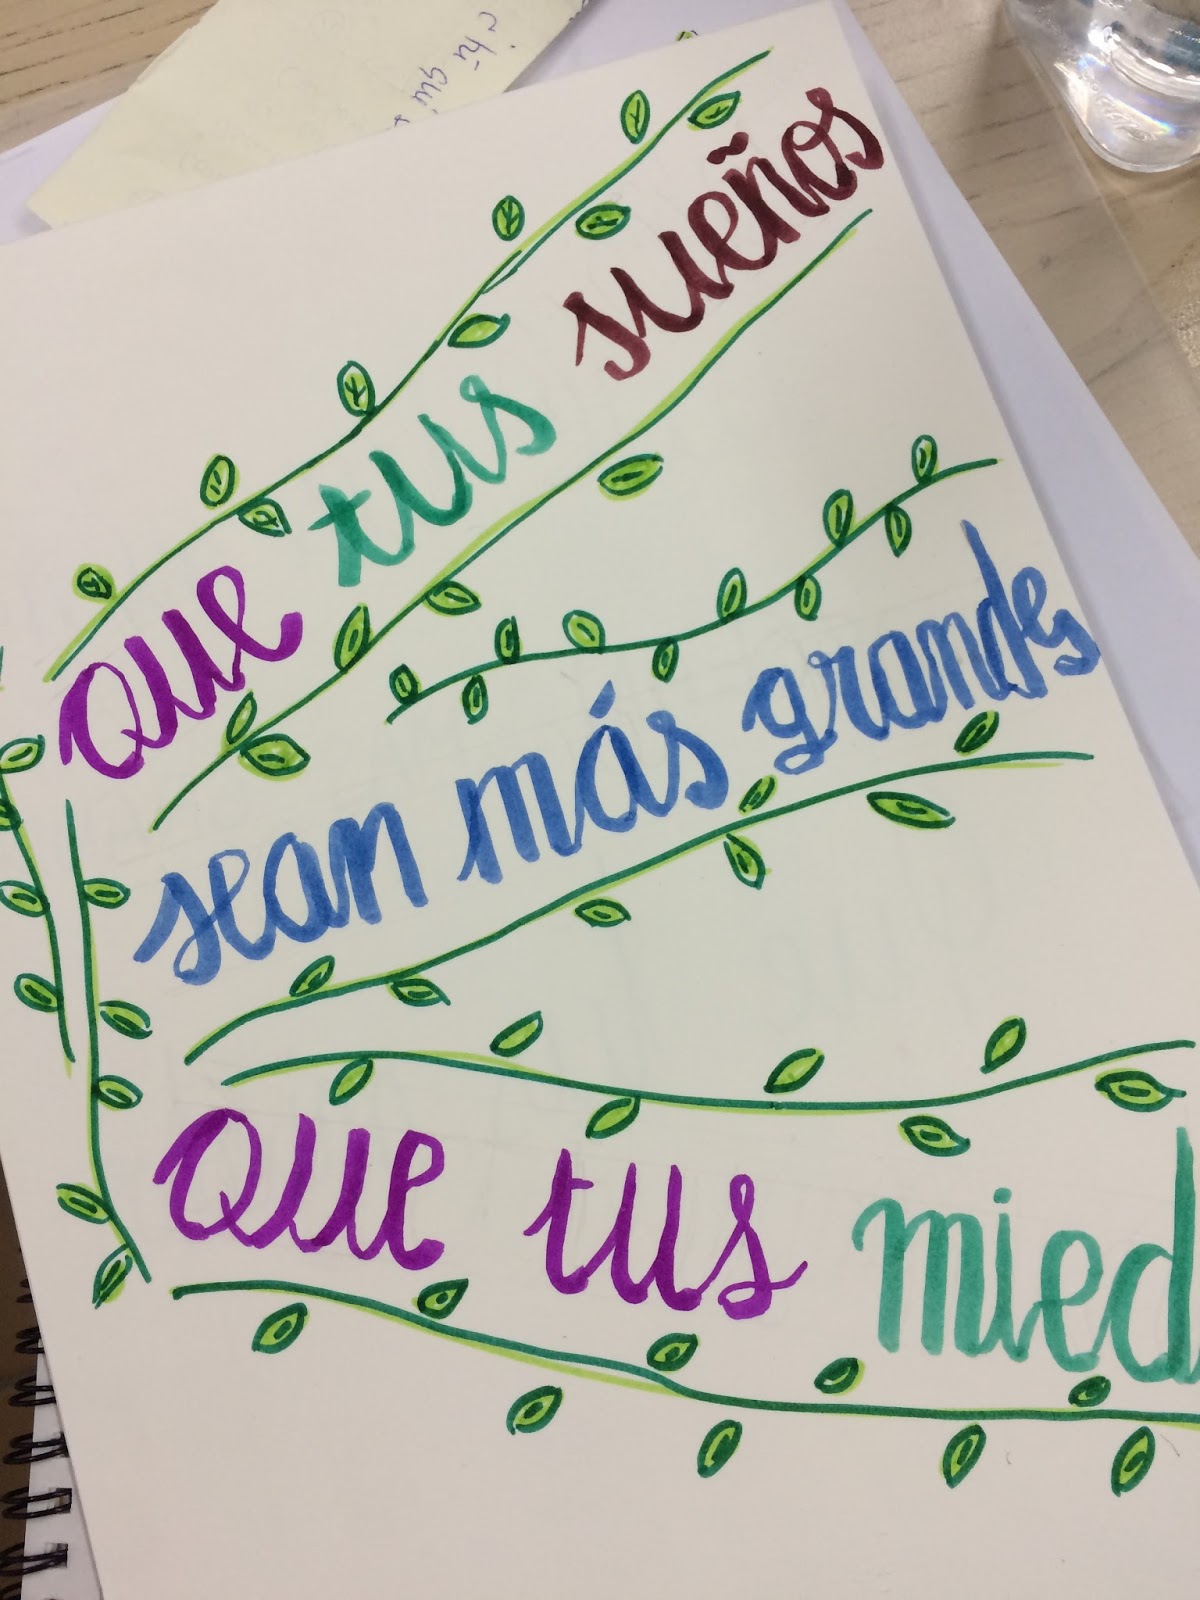 que tus sueños
sean más grandes
que tus mied